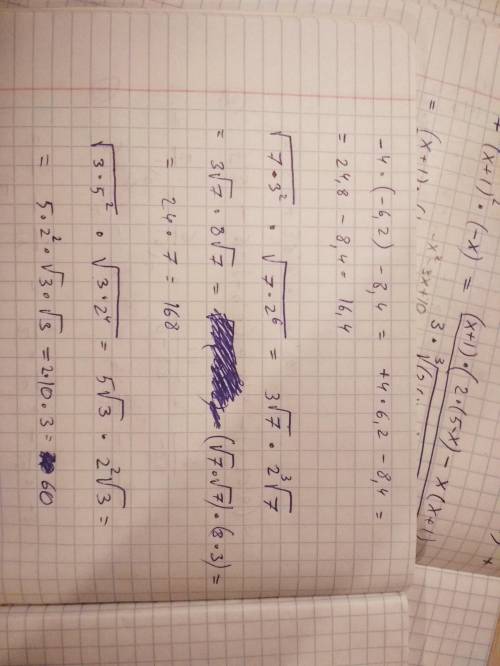 + (x+1)² · (-x) = (x+1) · (2·(5-x) - x(x+1)
= (x+1) ·
-x²-3x+10
3 · ³√
-4 · (-6,2) - 8,4 = +4·6,2 - 8,4 =
= 24,8 - 8,4 = 16,4
√7·3² · √7·2⁶ = 3√7 · 2³√7
= 3√7 · 8√7 = (√7·√7)·(8·3) =
= 24·7 = 168
√3·5² · √3·2⁴ = 5√3 · 2²√3 =
= 5·2²·√3·√3 = 2·10·3 = 60